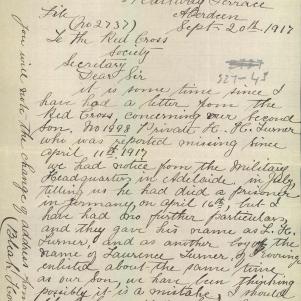 Railway Terrace
Aberdeen
File Sept 20th 1917
(No 2737)
To the Red Cross
Society
Secretary
Dear Sir
327-43
it is some time since I
have had a letter from the
Red Cross, concerning our second
son. No 1998 Private H. K. Turner
who was reported missing since
april 11th 1917
we had notice from the Military
Headquarters in Adelaide in July
telling us he had died a prisoner
in Germany, on april 16th, but I
have had no further particulars,
and they gave his name as L. K.
Turner, and as another boy of the
name of Laurence Turner, of
enlisted about the same time
as our son, we have been thinking
possibly it is a mistake, I should
You will note the change of address from